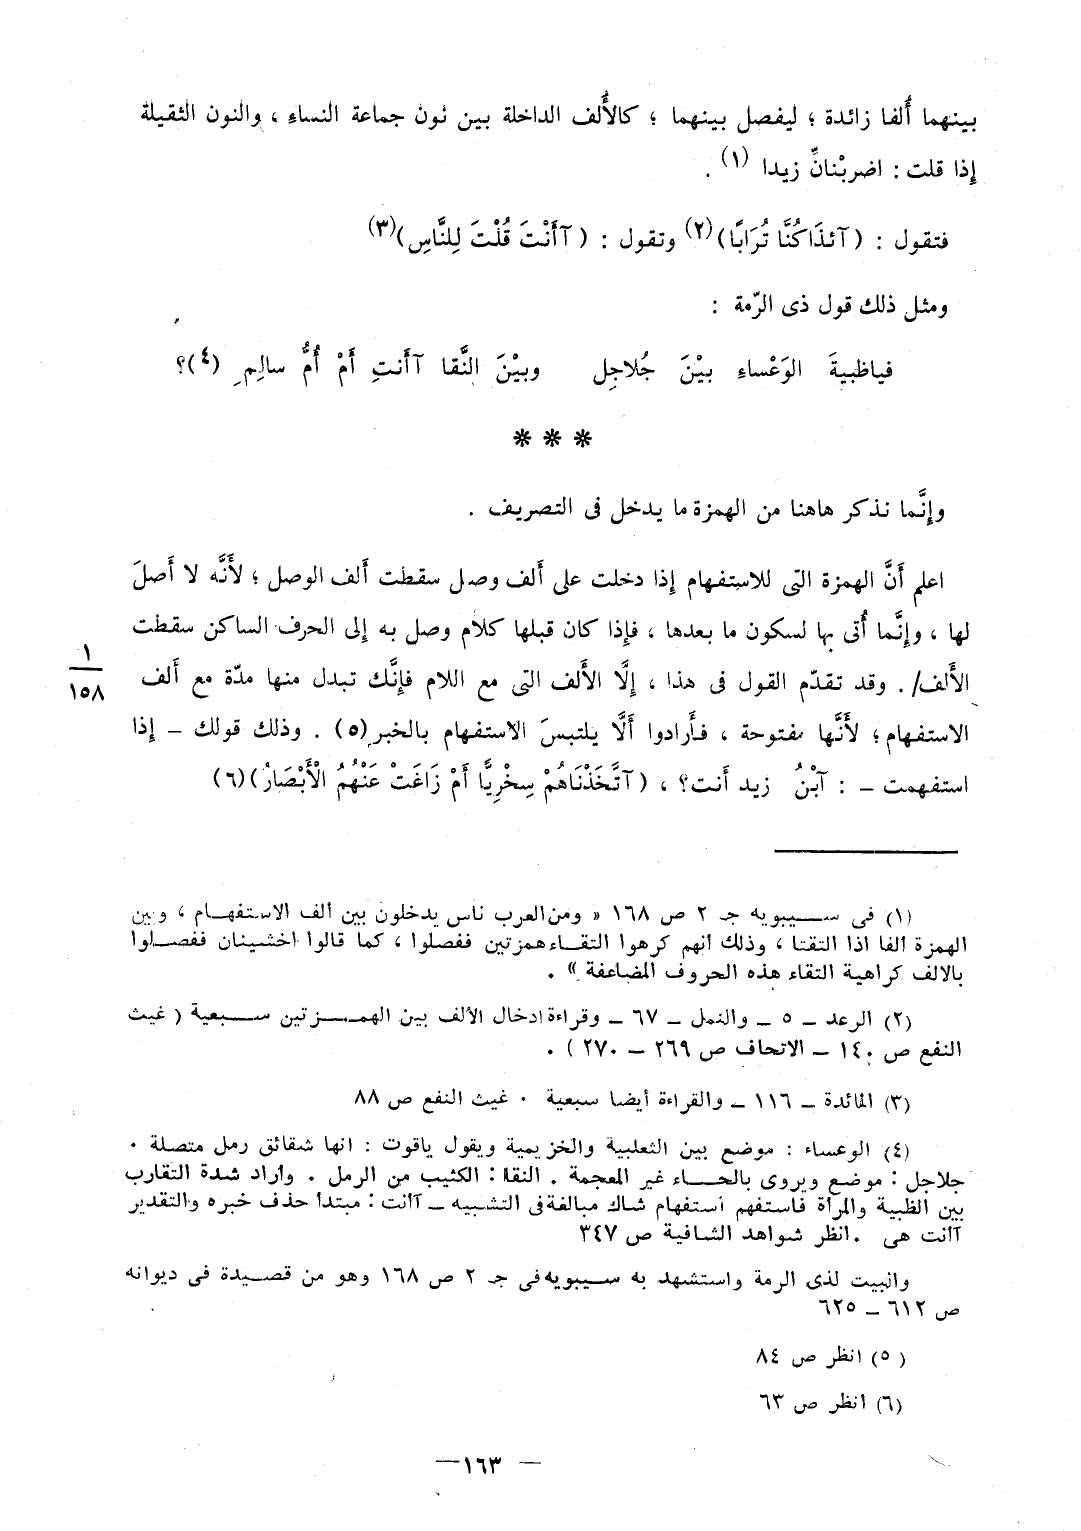 بينهما أَلفا زائدة ؛ ليفصل بينهما ؛ كالأَلف الداخلة بين نون جماعة النساءِ ، والنون الثقيلة
إِذا قلت : اضربْنانِّ زيدا (١) .
فتقول : ( آئذَا كُنَّا تُرَابًا)(٢) وتقول : ( آأَنْتَ قُلْتَ لِلنَّاسِ)(٣)
ومثل ذلك قول ذى الرّمة :
فياظبيةَ الوَعْساءِ بيْنَ جُلاجِل وبيْنَ النَّقا آأَنتِ أَمْ أُمُّ سالِمِ (٤)؟
* * *
وإِنَّما نذكر هاهنا من الهمزة ما يدخل فى التصريف .
اعلم أَنَّ الهمزة التى للاستفهام إِذا دخلت على أَلف وصل سقطت أَلف الوصل ؛ لأَنَّه لا أَصلَ
لها ، وإِنَّما أُتى بها لسكون ما بعدها ، فإِذا كان قبلها كلام وصل به إِلى الحرف الساكن سقطت
١
١٥٨
الأَلف/. وقد تقدّم القول فى هذا ، إِلَّا الأَلف التى مع اللام فإِنَّك تبدل منها مدّة مع أَلف
الاستفهام ؛ لأَنَّها مفتوحة ، فأَرادوا أَلَّا يلتبسَ الاستفهام بالخبر(٥) . وذلك قولك – إِذا
استفهمت – : آبْنُ زيد أَنت؟ ، ( آتَّخَذْنَاهُمْ سِخْرِيًّا أَمْ زَاغَتْ عَنْهُمُ الْأَبْصَارُ)(٦)
(١) فى سيبويه جـ ٢ ص ١٦٨ « ومن العرب ناس يدخلون بين ألف الاستفهام ، وبين
الهمزة ألفا اذا التقتا ، وذلك أنهم كرهوا التقاء همزتين ففصلوا ، كما قالوا اخشينان ففصلوا
بالالف كراهية التقاء هذه الحروف المضاعفة » .
(٢) الرعد – ٥ – والنمل – ٦٧ – وقراءة ادخال الألف بين الهمزتين سبعية ( غيث
النفع ص ١٤٠ – الاتحاف ص ٢٦٩ – ٢٧٠ ) .
(٣) المائدة – ١١٦ – والقراءة أيضا سبعية . غيث النفع ص ٨٨
(٤) الوعساء : موضع بين الثعلبية والخزيمية ويقول ياقوت : انها شقائق رمل متصلة .
جلاجل : موضع ويروى بالحاء غير المعجمة . النقا : الكثيب من الرمل . وأراد شدة التقارب
بين الظبية والمرأة فاستفهم استفهام شاك مبالغة فى التشبيه – آأنت : مبتدأ حذف خبره والتقدير
آأنت هى . انظر شواهد الشافية ص ٣٤٧
والبيت لذى الرمة واستشهد به سيبويه فى جـ ٢ ص ١٦٨ وهو من قصيدة فى ديوانه
ص ٦١٢ – ٦٢٥
(٥) انظر ص ٨٤
(٦) انظر ص ٦٣
– ١٦٣ –